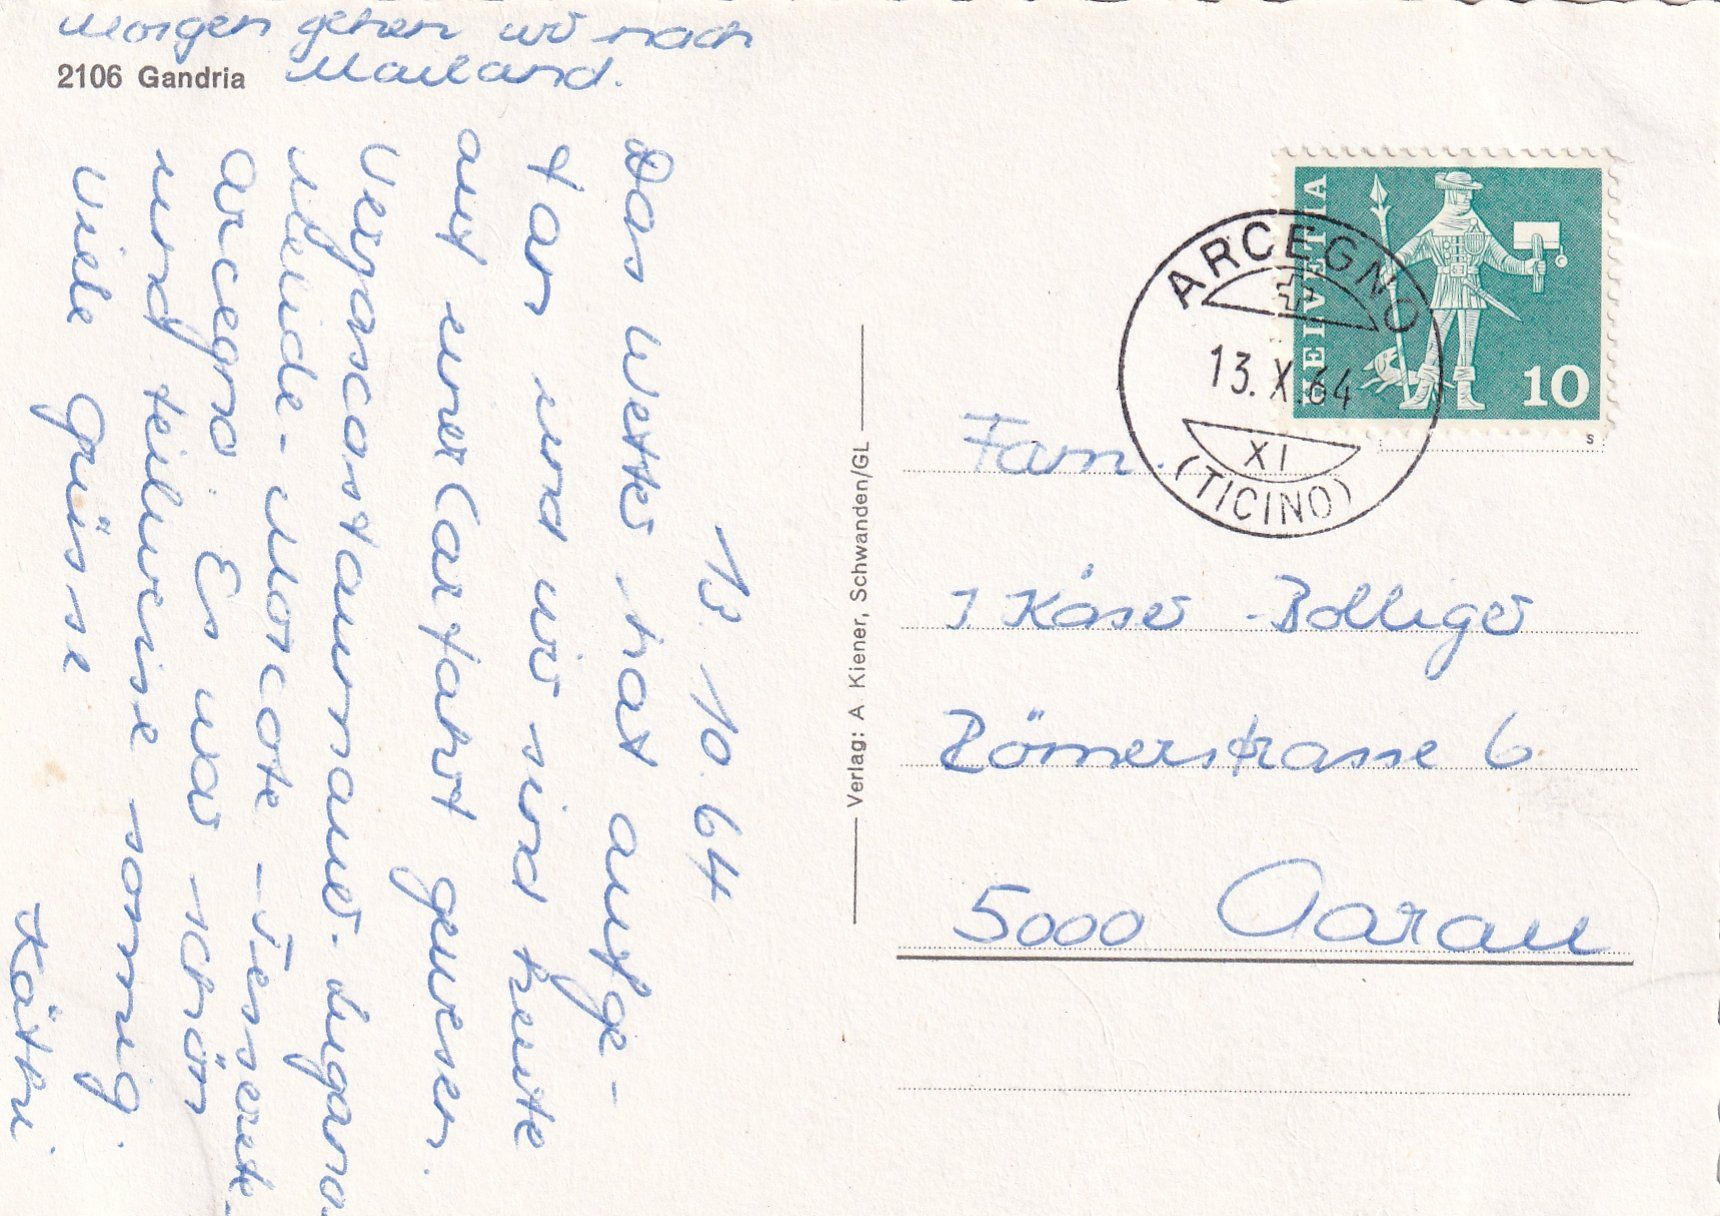 Morgen gehen wir nach
Mailand.
2106 Gandria
13. 10. 64
Das Wetter hat aufge-
tan und wir sind heute
auf einer Carfahrt gewesen.
Vergascostaursauer-Lugano
Melide-Morcote-Tesserete-
Arcegno. Es war schön
und teilweise sonnig.
Viele Grüsse
Käthi
Verlag: A Kiener, Schwanden/GL
HELVETIA
10
S
ARCEGNO
13.X.64
XI
(TICINO)
Fam.
J Käser-Bolliger
Römerstrasse 6
5000 Aarau